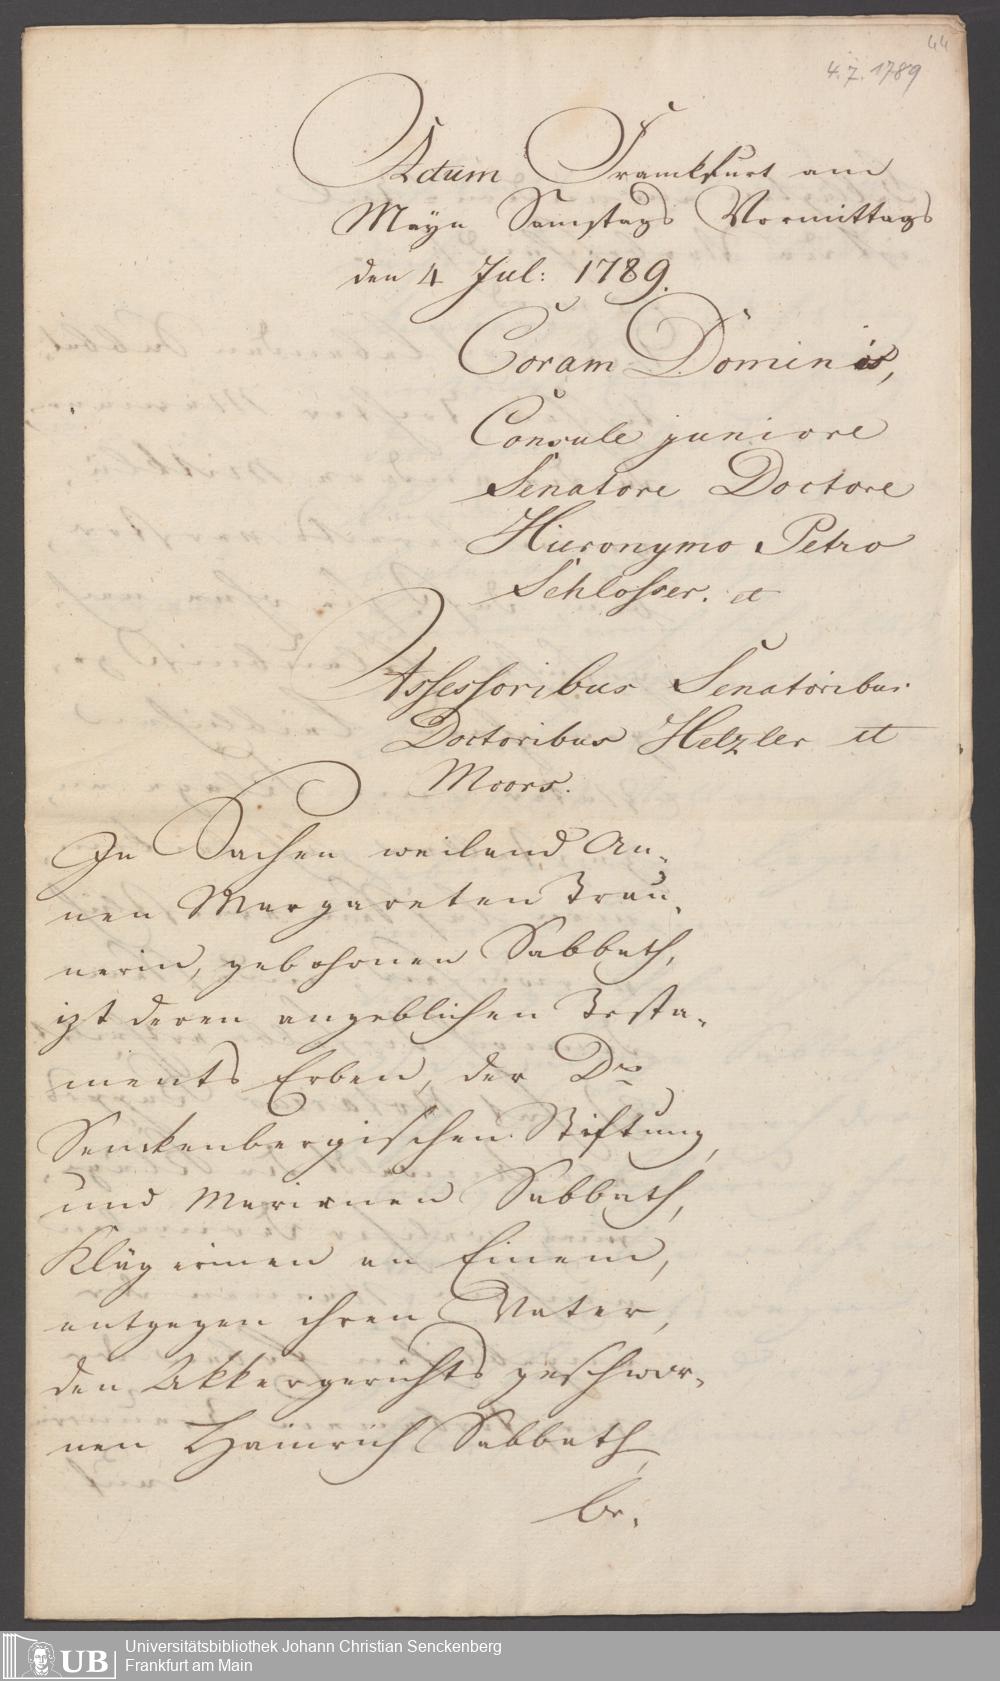 44
4.7.1789
Actum Franckfurt am
Mayn Samstags Vormittags
den 4 Jul: 1789.
Coram Dominis,
Consule juniore
Senatore Doctore
Hieronymo Petro
Schlosser. et
Assessoribus Senatoribus
Doctoribus Hetzler et
Moors.
In Sachen weilend An-
nen Margareten Brau-
nerin, gebohrnen Sabbath,
izt deren angeblichen Testa-
ments Erben, der Dr
Senckenbergischen Stiftung,
und Mariånen Sabbath,
Klägerinnen an Einem,
entgegen ihren Vater,
den Akkergerichts geschwor-
nen Hainrich Sabbath,
be-
UB
Universitätsbibliothek Johann Christian Senckenberg
Frankfurt am Main